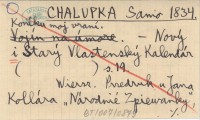 CHALUPKA Samo 1834.
Koníku moj vraný.
Vojín na ... — Nový
i Starý Vlastenský Kalendár
( ) s. 19.
Wiersz. Przedruk u Jana
Kollára „Národnié Zpiewanky"